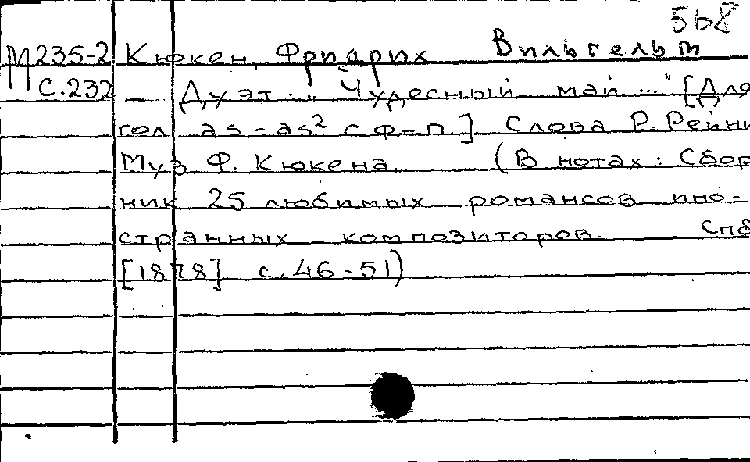 568
М235-2 Кюкен, Фридрих Вильгельм
С.232 Дуэт "Чудесный май..." [Для
гол as-as² с ф-п] Слова Р. Рейни
Муз Ф. Кюкена (В нотах: Сбор
ник 25 любимых романсов ино-
странных композиторов. СПб
[1878] с. 46-51)